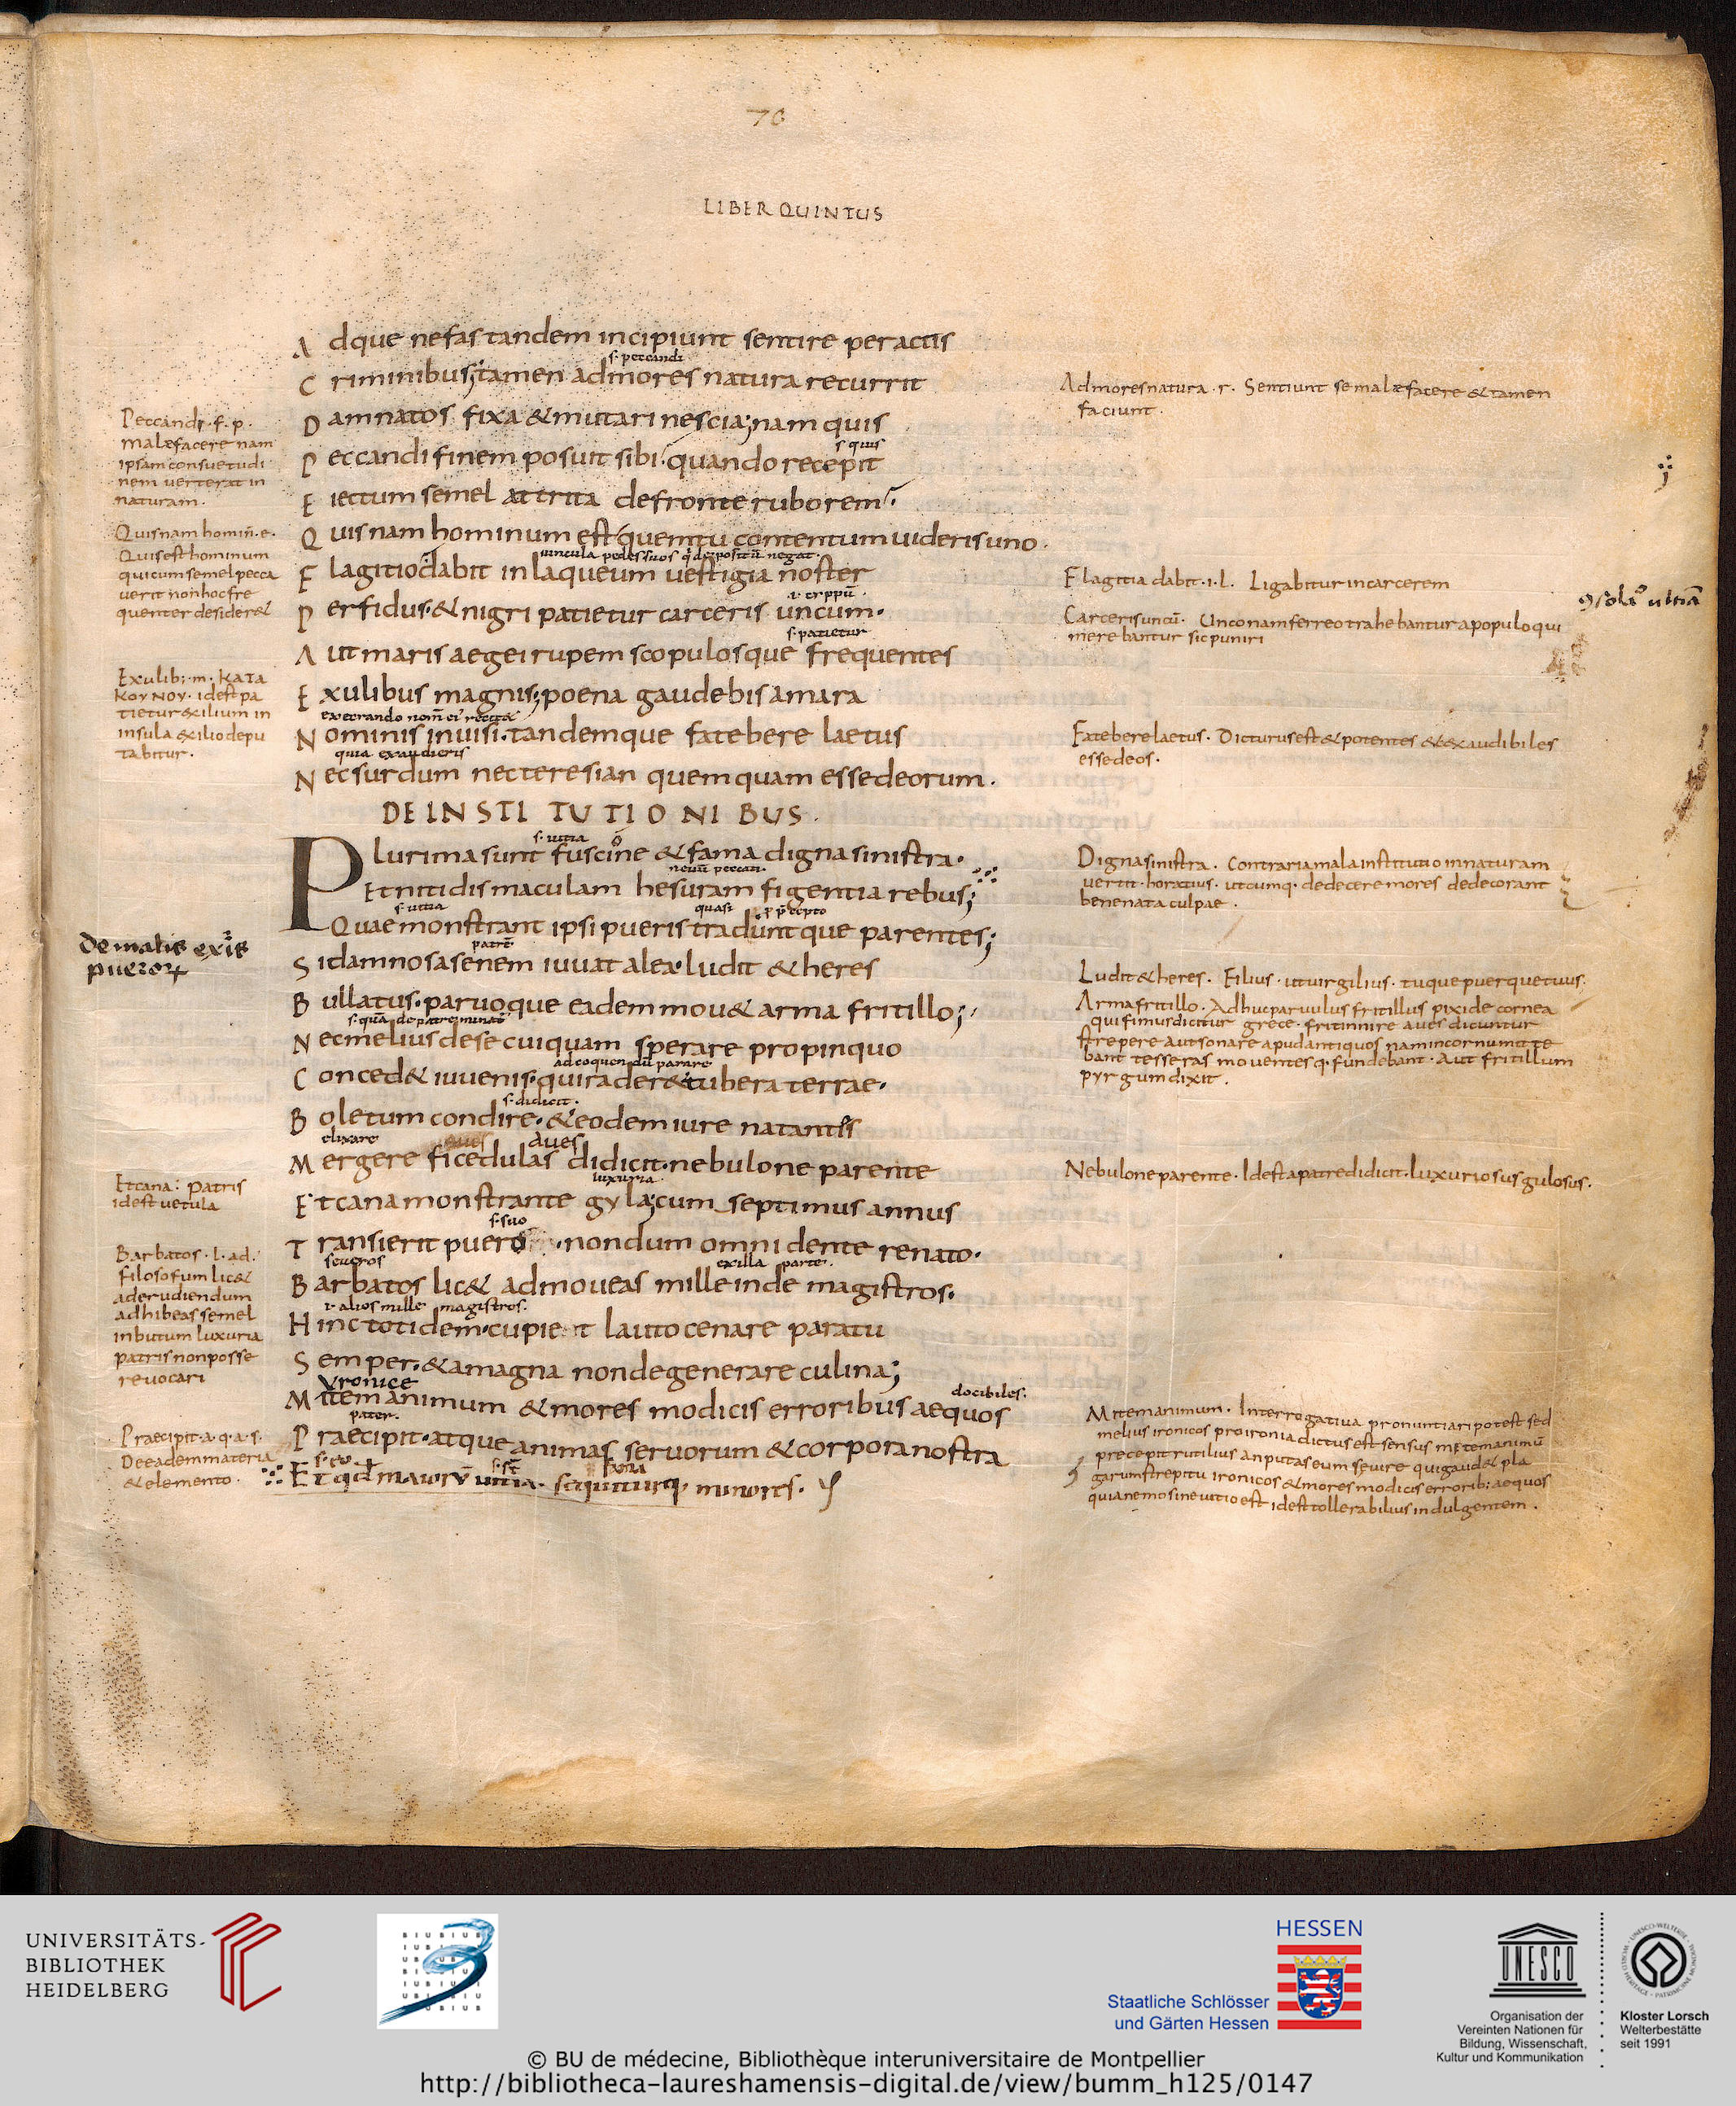 70
LIBER QUINTUS
Adque nefas tandem incipiunt sentire peractis
s. peccandi
Criminibus; tamen ad mores natura recurrit
Damnatos fixa & mutari nescia; nam quis
s quis
Peccandi finem posuit sibi. quando recepit
Eiectum semel attrita defronte ruborem.
Quis nam hominum est quem tu contentum uideris uno.
uincula pedes suos
negat.
Flagitio dabit in laqueum uestigia noster
Perfidus. & nigri patietur carceris uncum.
s. patietur
Aut maris aegei rupem scopulosque frequentes
Exulibus magnis; poena gaudebis amara
Nominis inuisi. tandemque fatebere laetus
quia exaudieris
Nec surdum nec teresian quemquam esse deorum.
DE INSTITUTIONIBUS.
s. uitia
Plurima sunt fuscine & fama digna sinistra.
Et nitidis maculam hesuram figentia rebus;
s. uitia quasi
Quae monstrant ipsi pueris traduntque parentes;
patrē
Si damnosa senem iuuat alea. ludit & heres
Bullatus. paruoque eadem mou& arma fritillo;
Nec melius de se cuiquam sperare propinquo
Conced& iuuenis. qui rader& tubera terrae.
s. didicit.
Boletum condire. & eodem iure natantis
elixare aues
Mergere ficedulas didicit. nebulone parente
luxuria.
Et cana monstrante gyla; cum septimus annus
s. suo
Transierit puero. nondum omni dente renato.
seueros ex illa parte.
Barbatos lic& admoueas mille inde magistros.
alios mille magistros.
Hinc totidem. cupiet lauto cenare paratu
Semper. & a magna non degenerare culina;
yronice docibiles.
Mitem animum & mores modicis erroribus aequos
pater.
Praecipit. atque animas seruorum & corpora nostra
Et qđ maiorū uitia. sequiturq; minores.
Peccandi. f. p.
malefacere nam
ipsam consuetudi
nem uerterat in
naturam.
Quisnam homiñ. e.
Quis est hominum
qui cum semel pecca
uerit non hoc fre
quenter desider&
Exulib; m. KATA
KOYNOY. id est pa
tietur exilium in
insula exilio depu
tabitur.
De malis
pueror
Et cana: Patris
id est uetula
Barbatos. l. ad.
filosofum lic&
ad erudiendum
adhibeas semel
inbutum luxuria
patris non posse
reuocari
Praecipit. a. q. a. s.
De eadem materia
& elemento.
Ad mores natura. r. Sentiunt se malefacere & tamen
faciunt.
Flagitia dabit. i. l. Ligabitur in carcerem
Carceris uncū. Unco nam ferreo trahebantur a populo qui
merebantur sic puniri
Fatebere laetus. Dicturus est & potentes & exaudibiles
esse deos.
Digna sinistra. Contraria mala institutio in naturam
uertit. horatius. utcumq. dedecere mores dedecorant
bene nata culpae.
Ludit & heres. Filius. ut uirgilius. tuque puerque tuus.
Arma fritillo. Adhuc paruulus fritillus pixide cornea
qui fimus dicitur grece. fritinnire aues dicuntur
strepere aut sonare apud antiquos nam in cornu mitte
bant tesseras mouentesq. fundebant. Aut fritillum
pyrgum dixit.
Nebulone parente. Id est a patre didicit. luxuriosus gulosus.
Mitem animum. Interrogatiua pronuntiari potest sed
melius ironicos pro ironia dictus est sensus mitem animū
precepit rutilius an putas eum seuire qui gaud& pla
garum strepitu ironicos & mores modicis errorib; aequos
quia nemo sine uitio est id est tollerabilius indulgentem.
UNIVERSITÄTS-
BIBLIOTHEK
HEIDELBERG
HESSEN
Staatliche Schlösser
und Gärten Hessen
UNESCO
Organisation der
Vereinten Nationen für
Bildung, Wissenschaft,
Kultur und Kommunikation
Kloster Lorsch
Welterbestätte
seit 1991
© BU de médecine, Bibliothèque interuniversitaire de Montpellier
http://bibliotheca-laureshamensis-digital.de/view/bumm_h125/0147